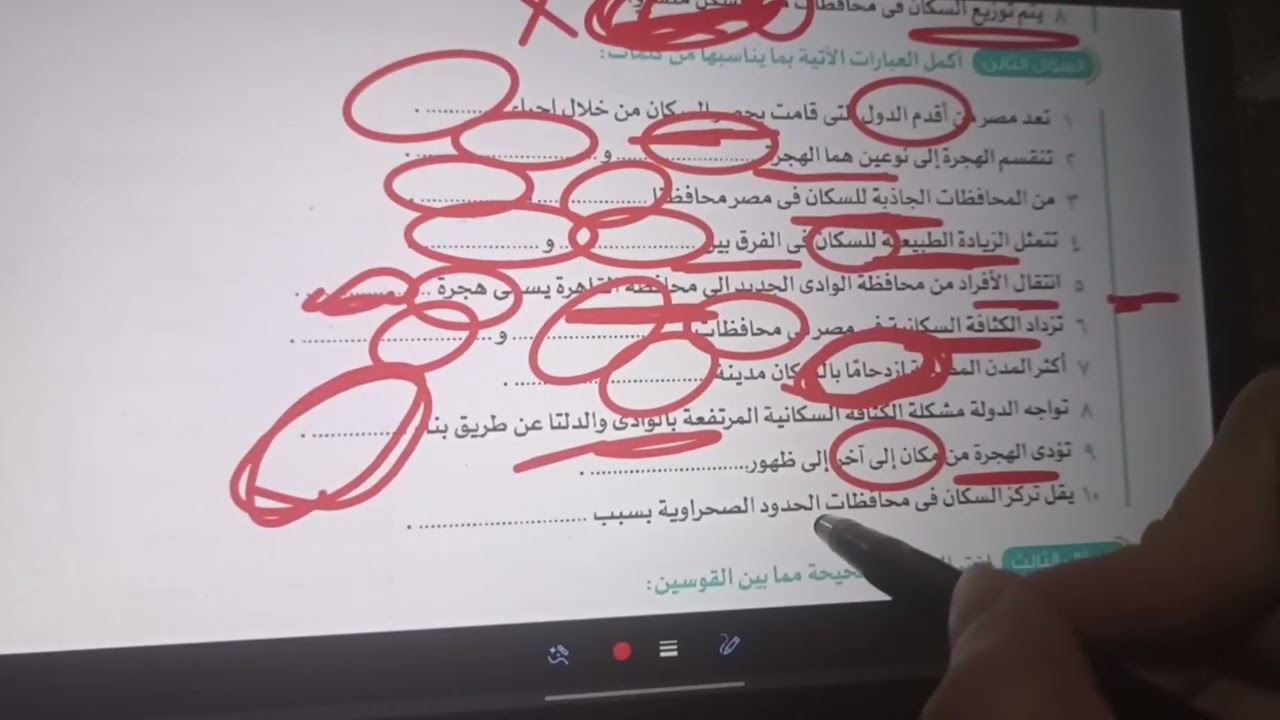 ٨ يتم توزيع السكان فى محافظات
السؤال الثانى أكمل العبارات الآتية بما يناسبها من كلمات:
١ تعد مصر من أقدم الدول التى قامت بحصر السكان من خلال إجراء .............. .
٢ تنقسم الهجرة إلى نوعين هما الهجرة .............. و .............. .
٣ من المحافظات الجاذبة للسكان فى مصر محافظتا .............. .............. .
٤ تتمثل الزيادة الطبيعية للسكان فى الفرق بين .............. و .............. .
٥ انتقال الأفراد من محافظة الوادى الجديد إلى محافظة القاهرة يسمى هجرة .............. .
٦ تزداد الكثافة السكانية فى مصر فى محافظات .............. و .............. .
٧ أكثر المدن المصرية ازدحامًا بالسكان مدينة .............. .
٨ تواجه الدولة مشكلة الكثافة السكانية المرتفعة بالوادى والدلتا عن طريق بناء .............. .
٩ تؤدى الهجرة من مكان إلى آخر إلى ظهور .............. .
١٠ يقل تركز السكان فى محافظات الحدود الصحراوية بسبب .............. .
الثالث مما بين القوسين: